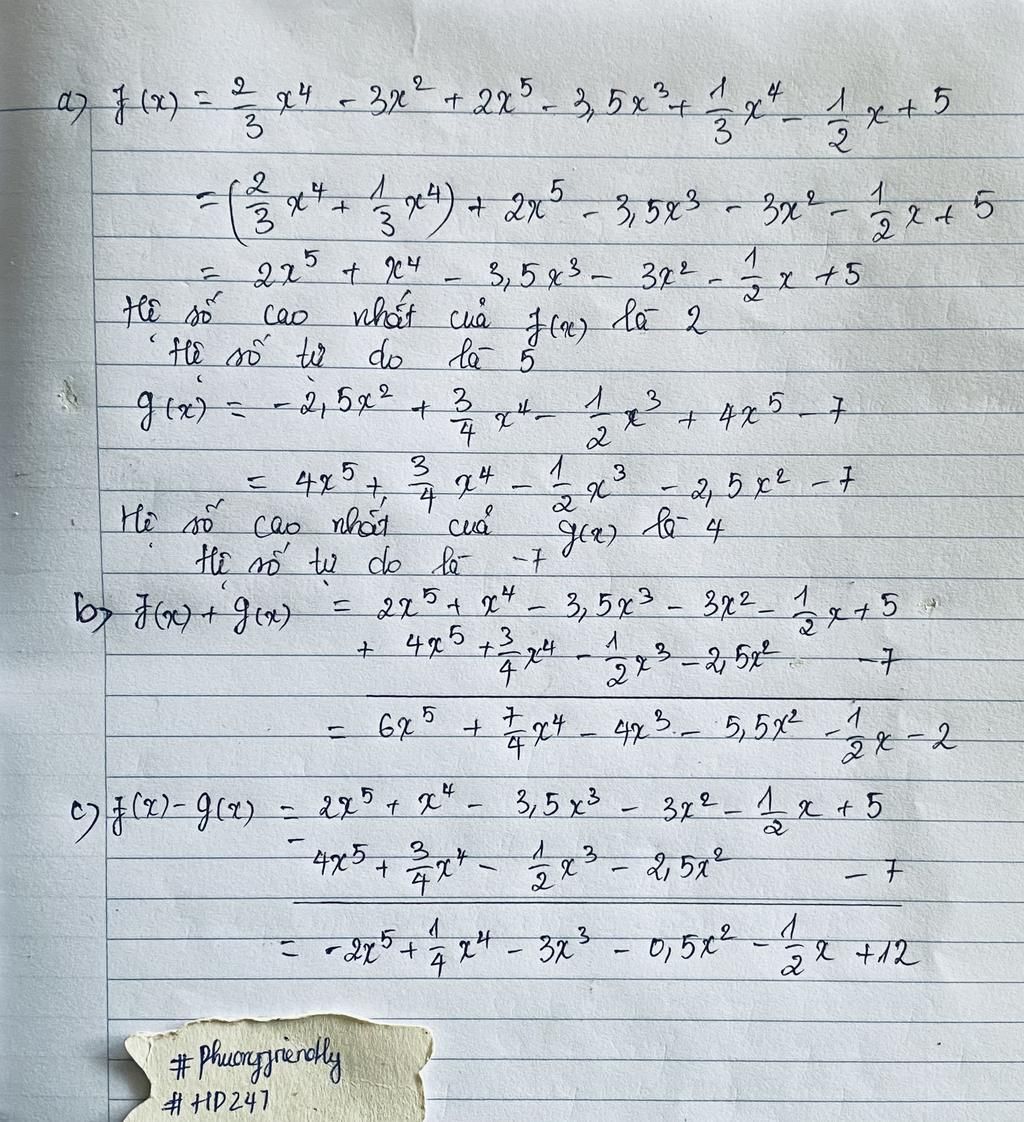 a) f(x) = 2/3 x⁴ - 3x² + 2x⁵ - 3,5x³ + 1/3 x⁴ - 1/2 x + 5
= (2/3 x⁴ + 1/3 x⁴) + 2x⁵ - 3,5x³ - 3x² - 1/2 x + 5
= 2x⁵ + x⁴ - 3,5x³ - 3x² - 1/2 x + 5
Hệ số cao nhất của f(x) là 2
Hệ số tự do là 5
g(x) = -2,5x² + 3/4 x⁴ - 1/2 x³ + 4x⁵ - 7
= 4x⁵ + 3/4 x⁴ - 1/2 x³ - 2,5x² - 7
Hệ số cao nhất của g(x) là 4
Hệ số tự do là -7
b) f(x) + g(x) = 2x⁵ + x⁴ - 3,5x³ - 3x² - 1/2 x + 5
+ 4x⁵ + 3/4 x⁴ - 1/2 x³ - 2,5x² - 7
= 6x⁵ + 7/4 x⁴ - 4x³ - 5,5x² - 1/2 x - 2
c) f(x) - g(x) = 2x⁵ + x⁴ - 3,5x³ - 3x² - 1/2 x + 5
- 4x⁵ + 3/4 x⁴ - 1/2 x³ - 2,5x² - 7
= -2x⁵ + 1/4 x⁴ - 3x³ - 0,5x² - 1/2 x + 12
# Phuongfriendly
# HD247